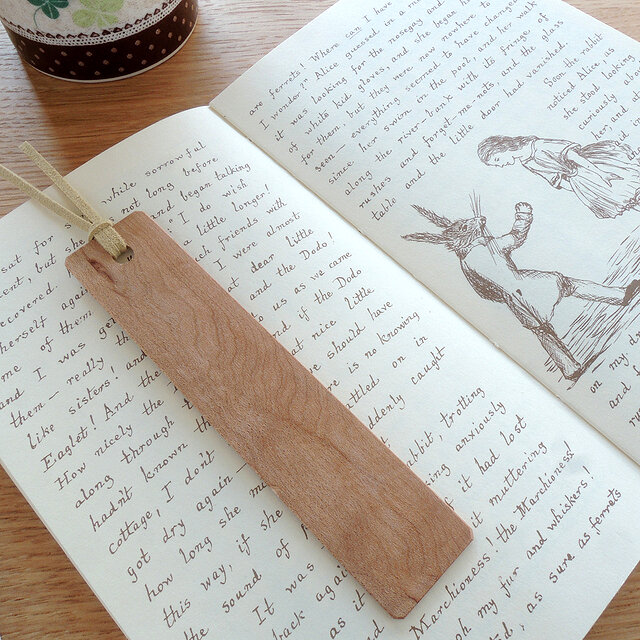 while sorrowful
sat for s not long before
ent, but she and began talking
ecovered "I do wish
herself again a little longer!
me of them ch friends with
and I was get I were almost
them – really the dear little
like sisters! and and the Dodo!
Eaglet! And the to us as we came
How nicely the nd if the Dodo
along through t at nice little
hadn't known th should have
cottage, I don't re is no knowing
got dry again – ttled on in
how long she m ddenly caught
this way, if she
the sound of abbit, trotting
It was ing anxiously
back agai it had lost
as it it muttering
Marchioness! the Marchioness!
h my fur and whiskers!
ted, as sure as ferrets
are ferrets! Where can I have
I wonder?" Alice guessed in a mo
it was looking for the nosegay and
of white kid gloves, and she began h
for them, but they were now nowhere to
seen – everything seemed to have changed
since her swim in the pool, and her walk
along the river-bank with its fringe of
rushes and forget-me-nots, and the glass
table and the little door had vanished.
Soon the rabbit
noticed Alice, as
she stood looking
curiously abo
her, and
on my dr
and f